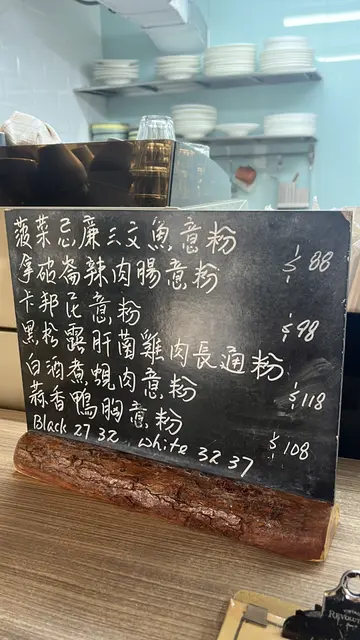 菠菜忌廉三文魚意粉
拿破崙辣肉腸意粉 $88
卡邦尼意粉
黑松露肝菌雞肉長通粉 $98
白酒煮蜆肉意粉 $118
蒜香鴨胸意粉 $108
Black 27 32 White 32 37